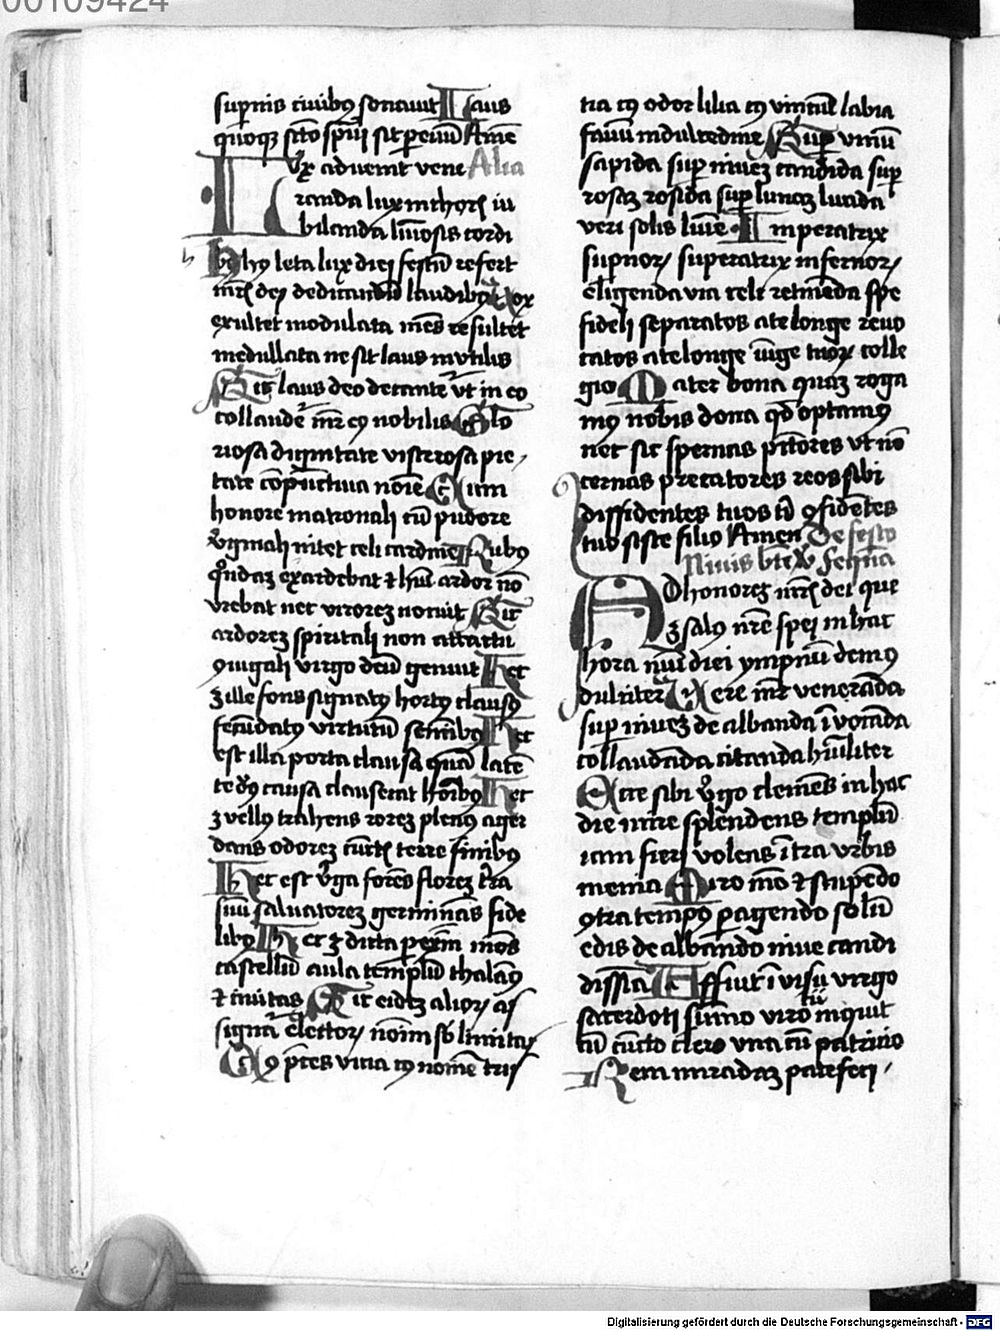 00109424
supernis ciuibꝫ sonauit Laus
quoqꝫ scto spui sit p euū Amē
Alia
ux aduenit vene
randa lux in thoris iu
bilanda lūosis cordi
bꝫ hꝰ leta lux diei festū refert
mris dei dedicandū laudibꝫ Vox
exultet modulata mēs resultet
medullata ne sit laus inutilis
Sic laus deo decantet vt in eo
collaudet mr eꝰ nobilis Glo
riosa dignitate viscerosa pie
tate compunctiua noīe Cum
honore matronali cū pudore
vginali nitet celi cardine Rubꝰ
quondaz exardebat ⁊ hūc ardor nō
vrebat nec virorez nocuit Sic
ardorez spiritali non attactu
ꝯiugali virgo deū genuit Hec
ē ille fons signatꝰ hortꝰ clausꝰ
fecūdatꝰ virtutū seminibꝫ Hec
est illa porta clausa quā latē
te deꝰ causa clauserat hoībꝫ Hec
ē vellꝰ trahens rorez plenꝰ ager
dans odorez cunctis terre finibꝫ
Hec est vga ferēs florez tra
suū saluatorez germināns fide
libꝫ Hec ē dicta p exm mōs
castellū aula templū thalamꝰ
⁊ ciuitas Sic eidez alior aſ
signat elector noīm solēnitas
Cꝰ preces vicia cꝰ nomē tris
tia cꝰ odor lilia cꝰ vincūt labia
fauū in dulcedine Super vinū
sapida sup niuez candida sup
rosaz rosida sup lunaz lucida
veri solis lūe Imperatrix
supnor superatrix infernor
eligenda via celi retinēda spe
fideli separatos a te longe reuo
catos a te longe iūge tuor colle
gio Mater bona quaz roga
mꝰ nobis dona qd optamꝰ
nec sic spernas pctores vt nō
cernas precatores reos sibi
diffidentes tuos tn ꝯfidentes
tuo siste filio Amen De festo
Niuis bte V Seqntia
Ad honorez mris dei que
ē salꝰ nre spei in hac
hora nūc diei ympnū demꝰ
dulciter Vere mr veneranda
sup niuez de albanda inuocanda
collaudanda citanda humiliter
Ecce sibi vgo clemēs in hac
die nitre splendens templū
iam fieri volens intra vrbis
menia Miro mō ⁊ stupēdo
ꝯtra tempꝰ pagendo solū
edis dealbando niue candi
dissima Affuit in visu virgo
sacerdoti sūmo viro inquit
cū cūcto clero vna cū patricio
Rem mirādaz patefeci
Digitalisierung gefördert durch die Deutsche Forschungsgemeinschaft - DFG